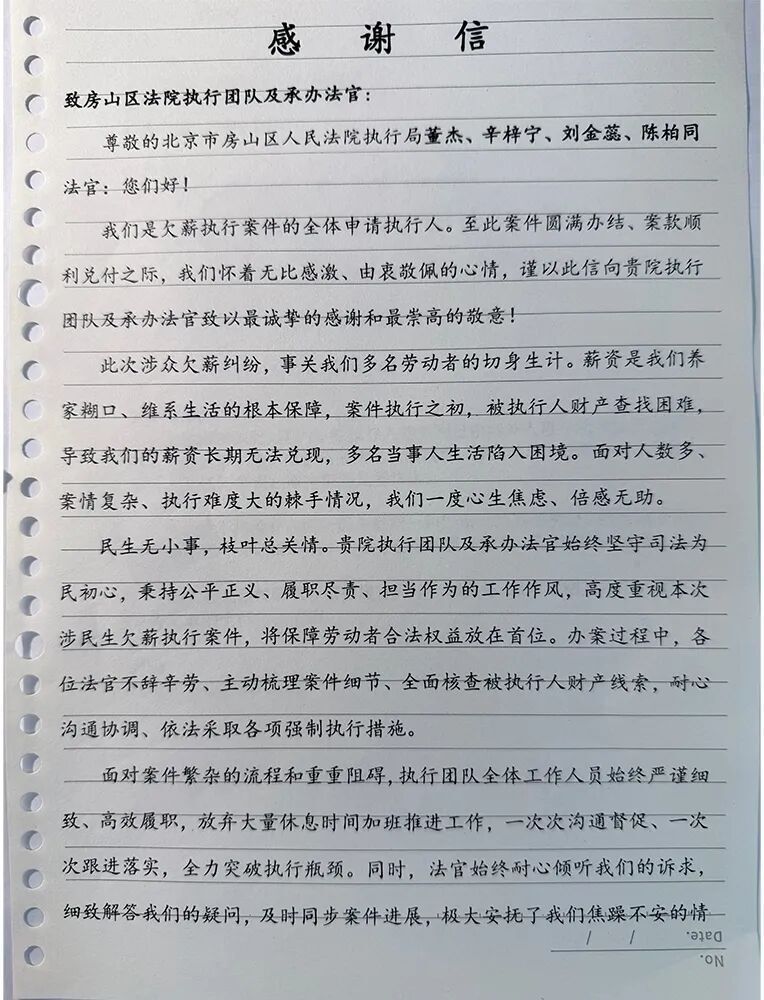 感 谢 信
致房山区法院执行团队及承办法官：
尊敬的北京市房山区人民法院执行局董杰、辛梓宁、刘金蕊、陈柏同
法官：您们好！
我们是欠薪执行案件的全体申请执行人。至此案件圆满办结、案款顺
利兑付之际，我们怀着无比感激、由衷敬佩的心情，谨以此信向贵院执行
团队及承办法官致以最诚挚的感谢和最崇高的敬意！
此次涉众欠薪纠纷，事关我们多名劳动者的切身生计。薪资是我们养
家糊口、维系生活的根本保障，案件执行之初，被执行人财产查找困难，
导致我们的薪资长期无法兑现，多名当事人生活陷入困境。面对人数多、
案情复杂、执行难度大的棘手情况，我们一度心生焦虑、倍感无助。
民生无小事，枝叶总关情。贵院执行团队及承办法官始终坚守司法为
民初心，秉持公平正义、履职尽责、担当作为的工作作风，高度重视本次
涉民生欠薪执行案件，将保障劳动者合法权益放在首位。办案过程中，各
位法官不辞辛劳、主动梳理案件细节、全面核查被执行人财产线索，耐心
沟通协调、依法采取各项强制执行措施。
面对案件繁杂的流程和重重阻碍，执行团队全体工作人员始终严谨细
致、高效履职，放弃大量休息时间加班推进工作，一次次沟通督促、一次
次跟进落实，全力突破执行瓶颈。同时，法官始终耐心倾听我们的诉求，
细致解答我们的疑问，及时同步案件进展，极大安抚了我们焦躁不安的情
Date. / /
No.